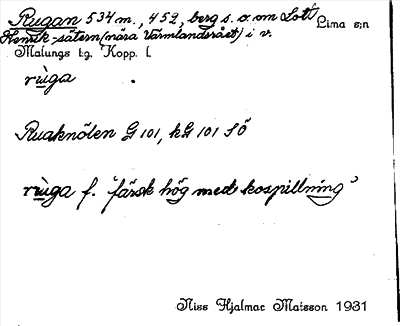 Rugan 534 m., 452, berg s. o. om Lott Lima s:n
Henrik-sätern (nära Värmlandsrået) i v.
Malungs t:g. Kopp. l.
rùga
Ruaknölen G 101, kG 101 SÖ
rùga f. 'färsk hög med kospillning'
Niss Hjalmar Matsson 1931